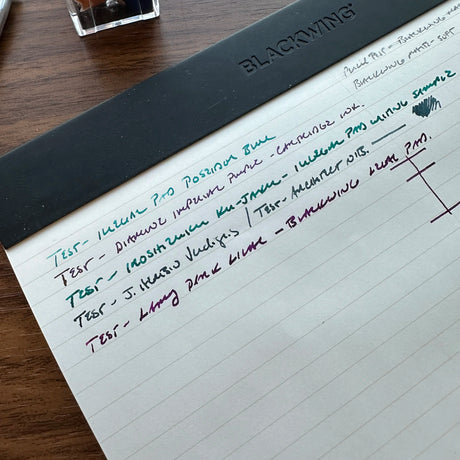 BLACKWING
PENCIL TEST - BLACKWING MATTE
BLACKWING MATTE - SOFT
TEST - ILLEGAL PAD POSEIDON BLUE
TEST - DIAMINE IMPERIAL PURPLE - CARTRIDGE INK.
TEST - IROSHIZUKU KU-JAKU - ILLEGAL PAD WRITING SAMPLE
TEST - J. Herbin Verdigris / TEST - ARCHITECT NIB.
TEST - LAMY DARK LILAC - BLACKWING LEGAL PAD.